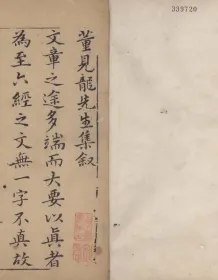 董見龍先生集叙
文章之途多端而大要以真者
為至六經之文無一字不真故
339720